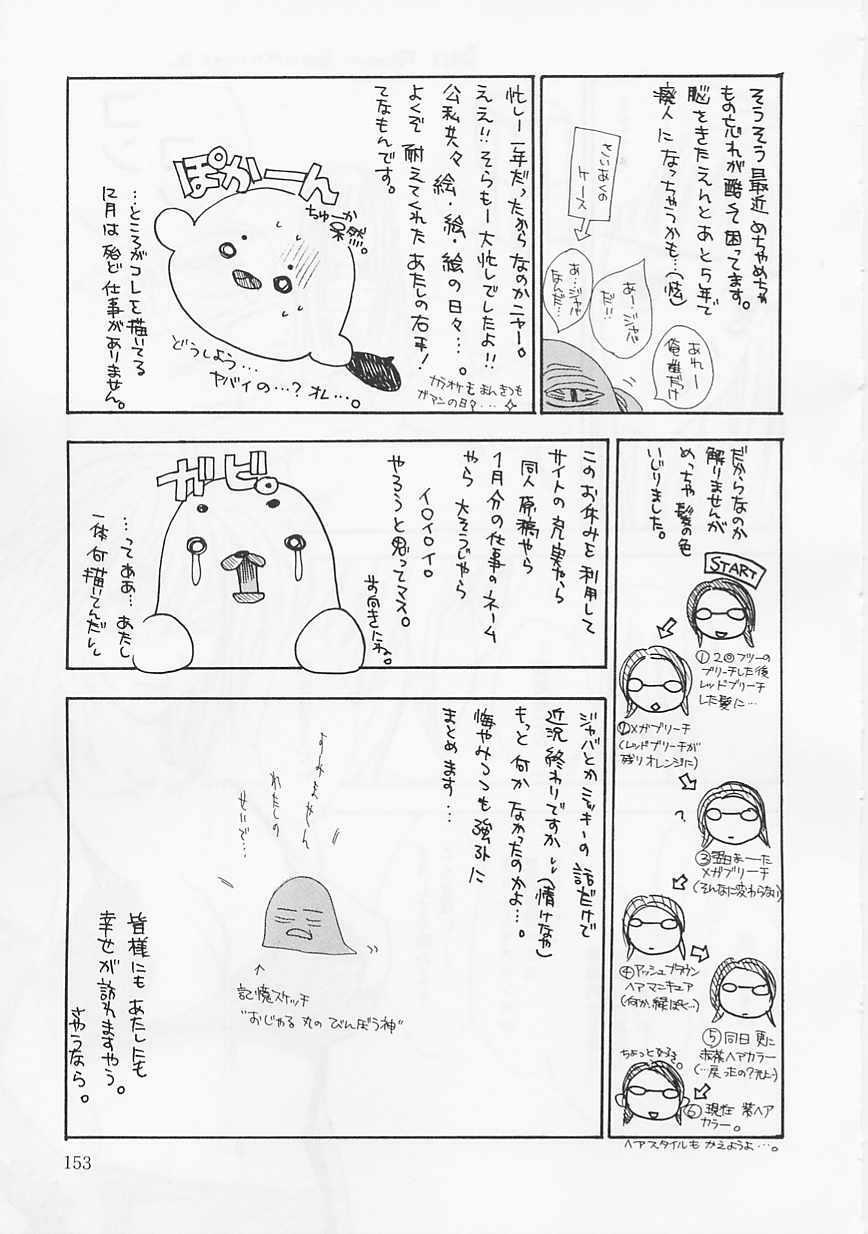 そうそう最近めちゃめちゃ
もの忘れが酷くて困ってます。
脳をきたえんとあと5年で
廃人になっちゃうかも…(炫)
ケース
あれー
俺誰だっけ
あー…ジャバ
だ!!
あ…ジャバ
なんだ…
忙しー一年だったからなのかニャー。
ええ!!そらもー大忙しでしたよ!!
公私共々絵・絵・絵の日々…。
よくぞ耐えてくれたあたしの右手!
てなもんです。
カラオケもまんきつも
ガマンの日々…
ぽかーん
ちゅーか
呆然。
…ところがコレを描いてる
12月は殆ど仕事がありません。
どうしよう…
ヤバイの…?オレ…。
だからなのか
解りませんが
めっちゃ髪の色
いじりました。
START
①2回フツーの
ブリーチした後
レッドブリーチ
した髪に…
②メガブリーチ
(レッドブリーチが
残りオレンジに)
?
③翌日まーた
メガブリーチ
(そんなに変わらない)
④アッシュブラウン
ヘアマニキュア
(何か、緑ぽく…)
⑤同日更に
赤茶ヘアカラー
(…戻ったの?元に…)
ちょっと好き。
⑥現在 紫ヘア
カラー。
ヘアスタイルもかえようよ…。
このお休みを利用して
サイトの充実やら
同人原稿やら
1月分の仕事のネーム
やら大そうじやら
イロイロイロ
やろうと思ってマス。
前向きにね。
ガビ。
…ってああ…あたし
一体何描いてんだし
ジャバとかミッキーの話だけで
近況終わりですか(情けなや)
もっと何かなかったのかよ…。
悔やみつつも強引に
まとめます…
すみません
わたしの
せいで…
↑
記憶スケッチ
"おじゃる丸のびんぼう神"
皆様にもあたしにも
幸せが訪れますやう。
さやうなら。
153